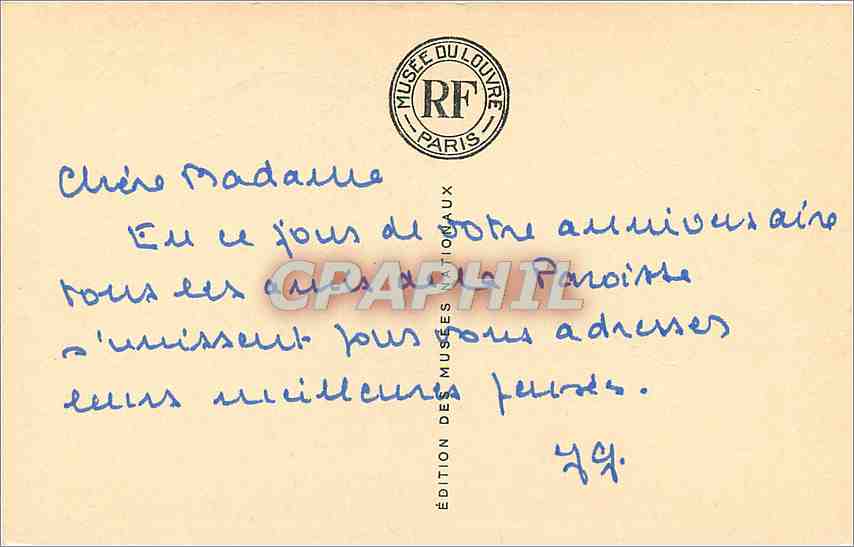 MUSÉE DU LOUVRE
RF
PARIS
Chère Madame
En ce jour de votre anniversaire
tous les amis de la Paroisse
s'unissent pour vous adresser
leurs meilleures pensées.
JG.
ÉDITION DES MUSÉES NATIONAUX
CPAPHIL